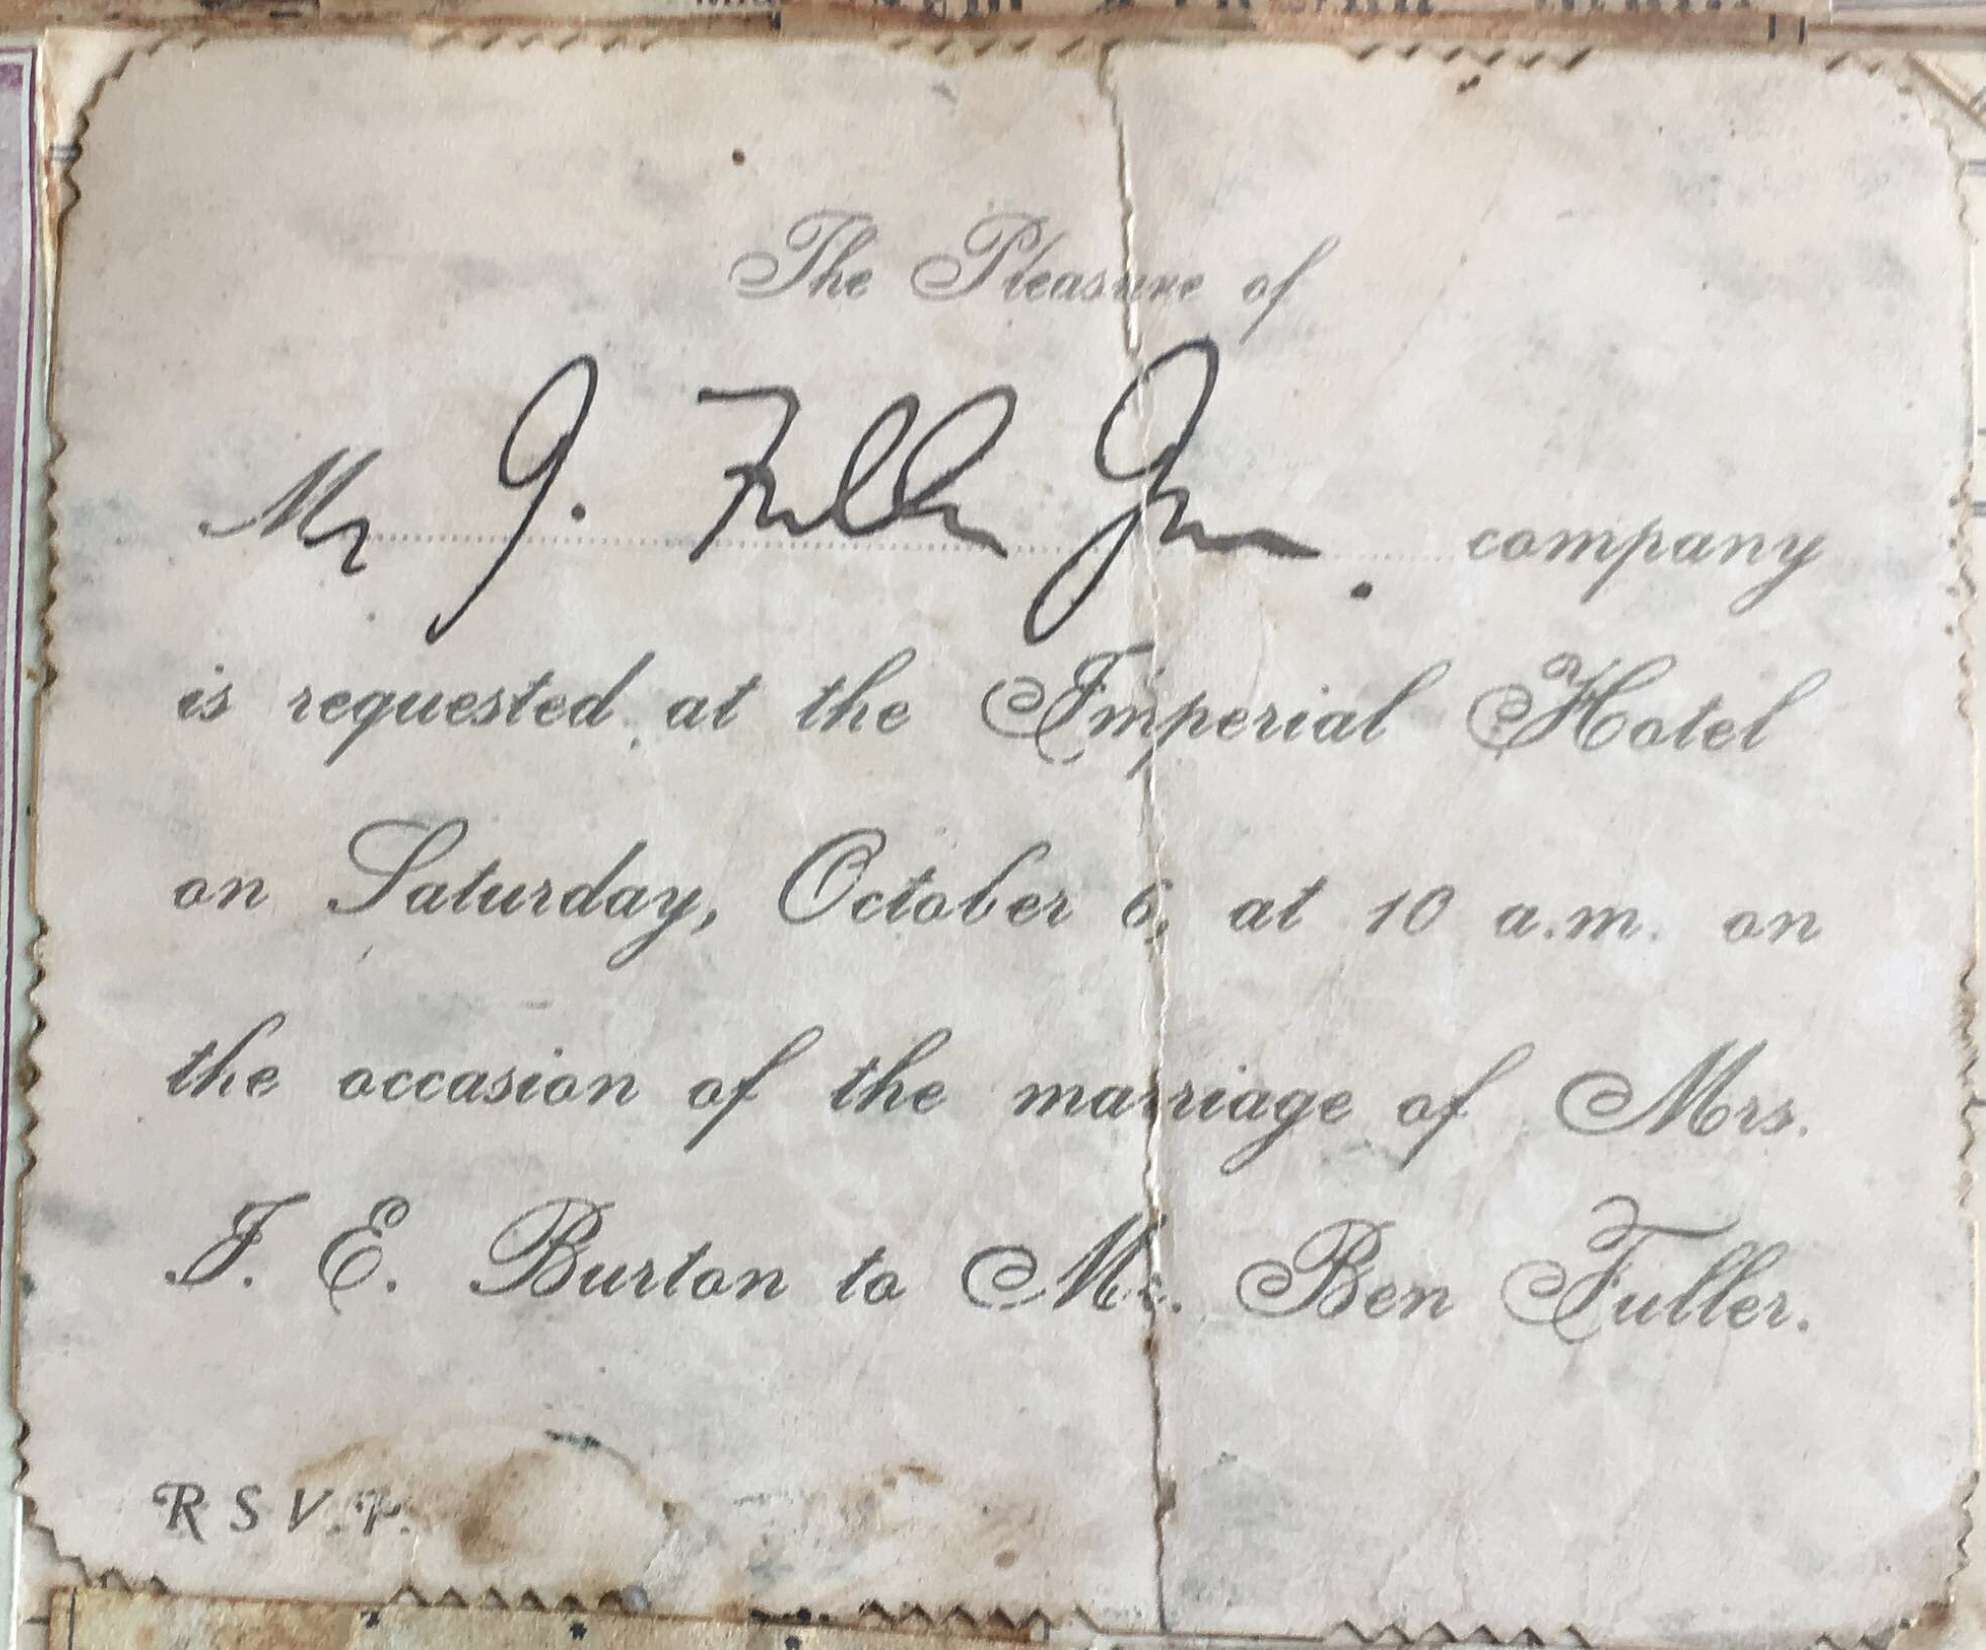 The Pleasure of
Mr J. Fuller Jnr. company
is requested at the Imperial Hotel
on Saturday, October 6, at 10 a.m. on
the occasion of the marriage of Mrs.
J. E. Burton to Mr. Ben Fuller.
R S V.P.